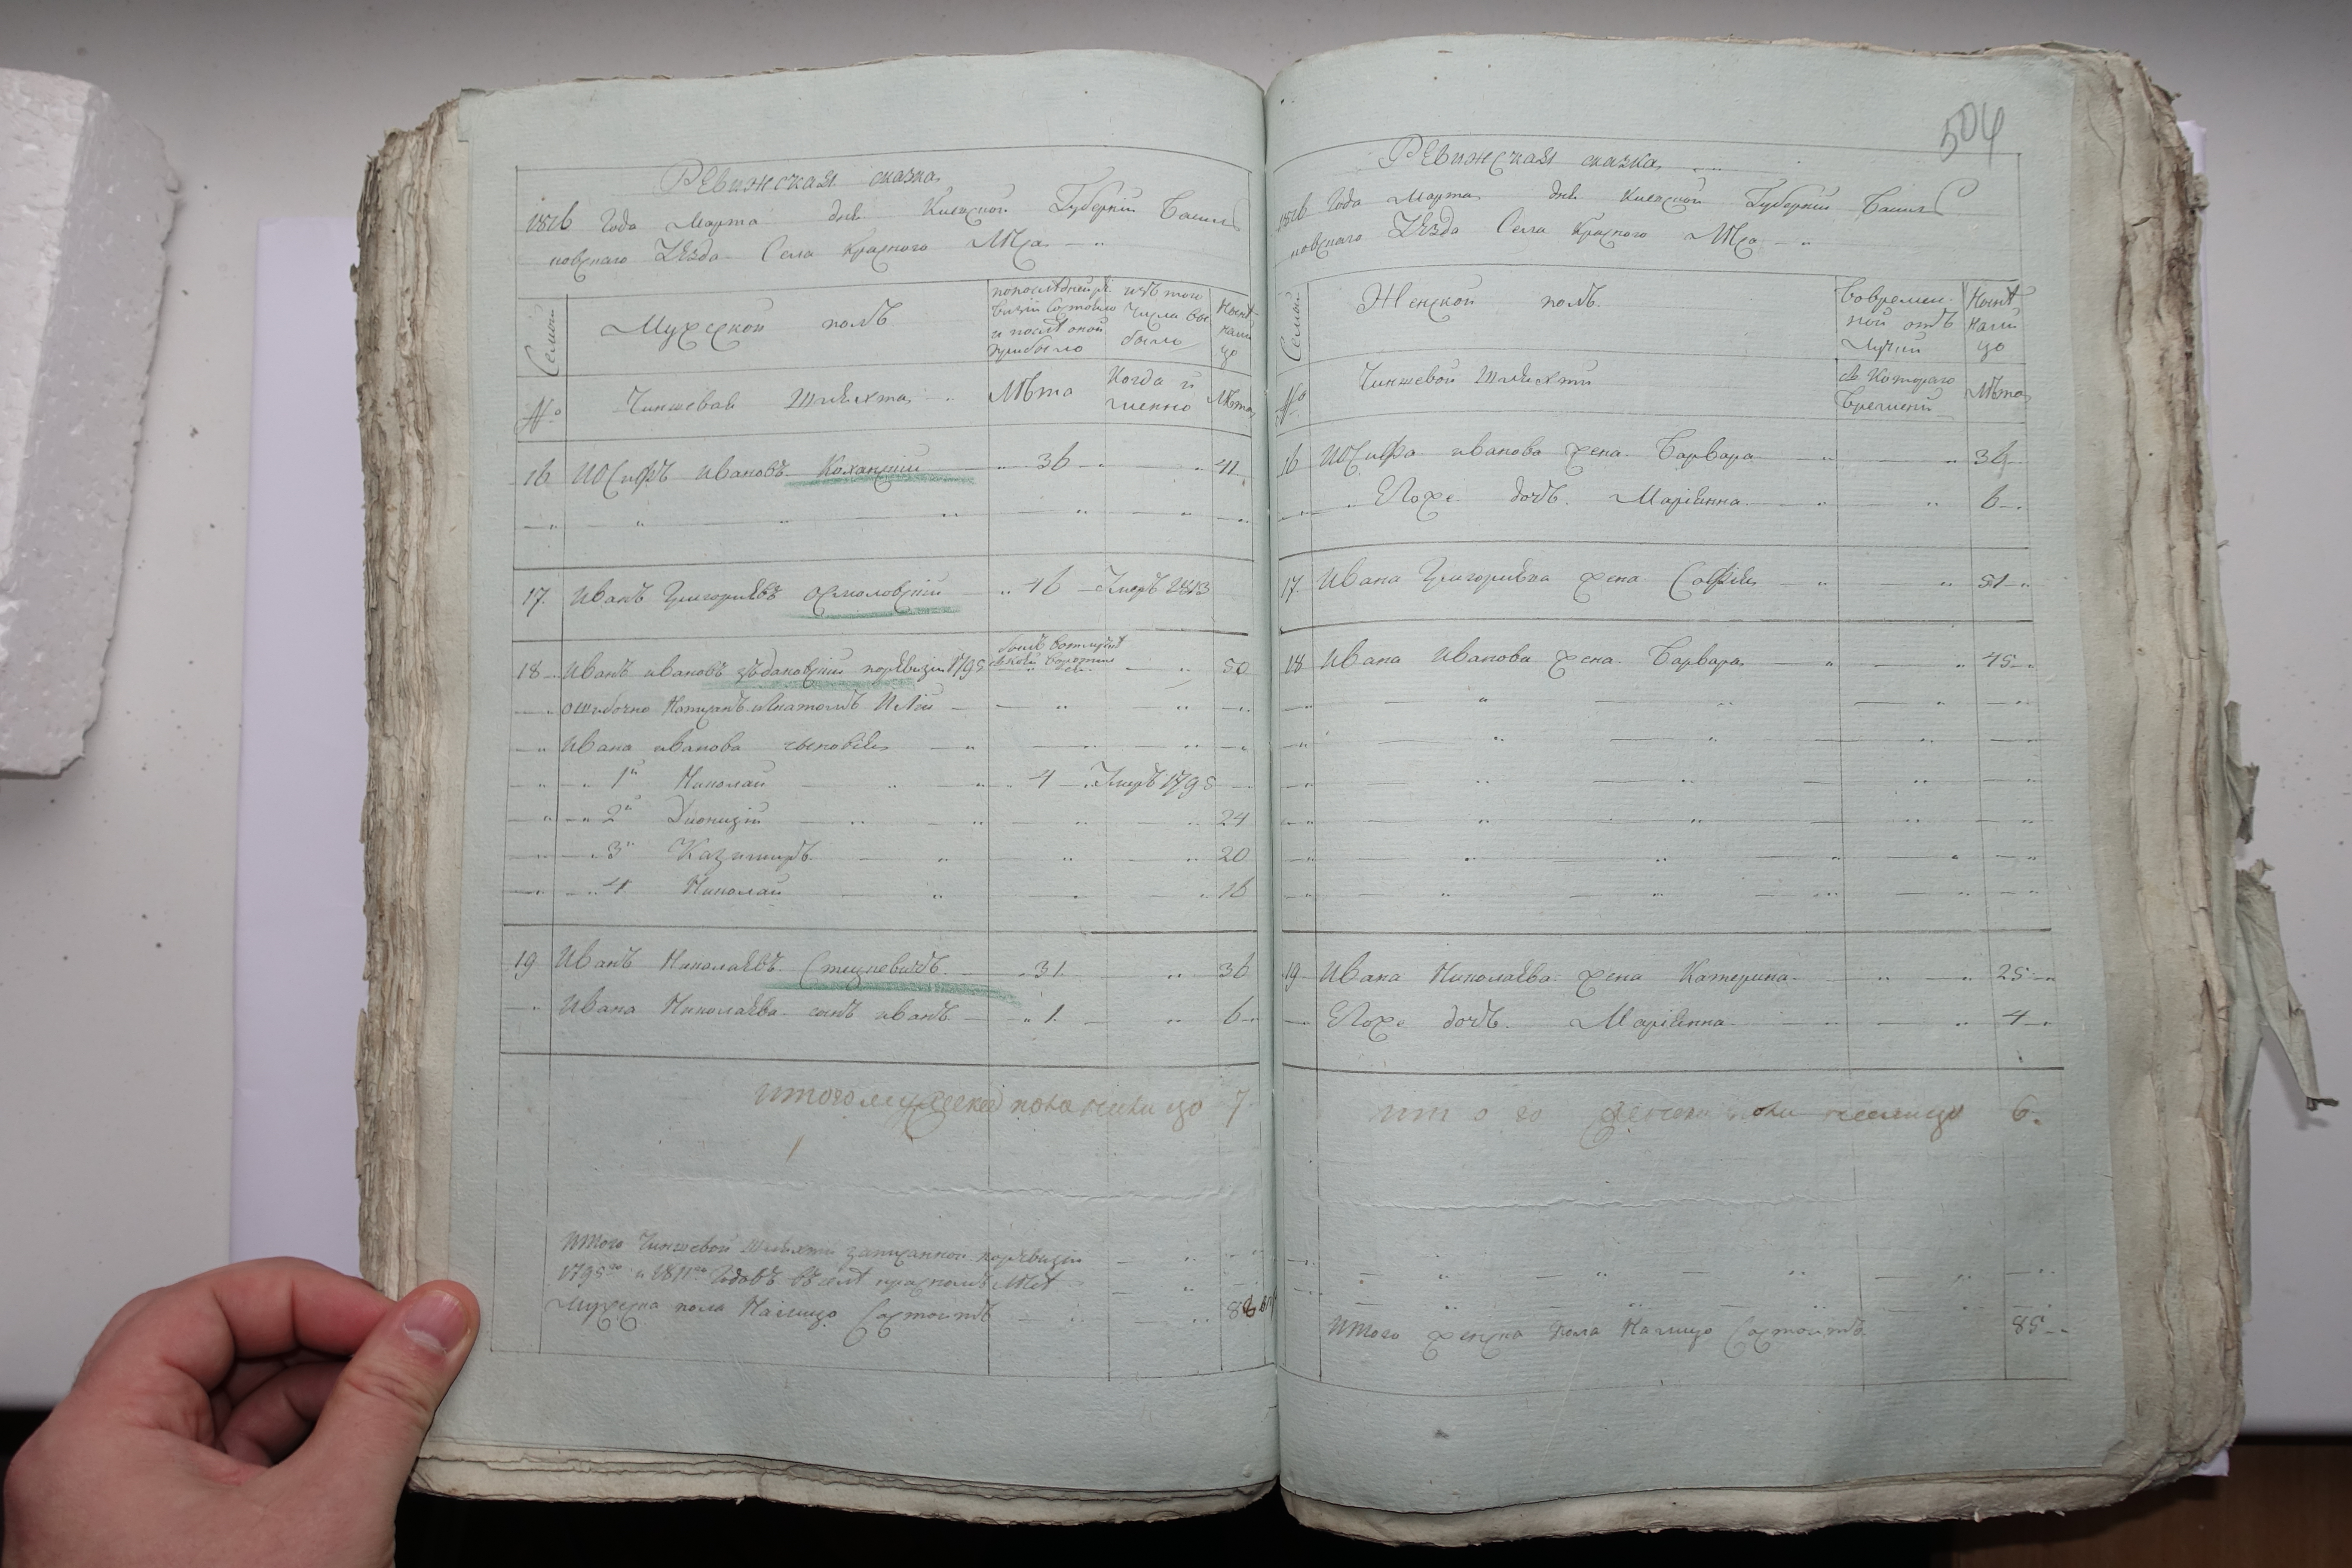 Ревижская сказка
1816 Года Марта дня Киевской Губернїи Васил
ковскаго Уѣзда Села Красного Лѣса
Семьи
Мужеской полъ
по последней ре
визїи состояло
и послѣ оной
прибыло
изъ того
числа вы
было
Нынѣ
на ли
цо
№
Чиншевая Шляхта
Лѣта
Когда и
именно
Лѣта
16 Иосифъ Ивановъ Коханскїй 36 41
17. Иванъ Григорьевъ Осмоловскїй 46 Умеръ 1813
18 Иванъ Ивановъ по ревизїи 1795 50
ошибочно Написанъ
Ивана Иванова сыновья
1й Николай 4 Умеръ 1795
2й Дионизїй 24
3й Казимиръ 20
4 Николай 16
19 Иванъ Николаевъ Стецкевичъ 31 36
Ивана Николаева сынъ Иванъ 1 6
итого мужеска пола налицо 7
Итого Чиншевой Шляхти записанной по ревизїи
1795го и 1811го Годовъ въ селѣ Красномъ Лѣсѣ
Мужеска пола Налицо Состоитъ
504
Ревижская сказка
1816 Года Марта дня Киевской Губернїи Васил
ковскаго Уѣзда Села Красного Лѣса
Семьи
Женской полъ
Во времен
ной отъ
лучкй
Нынѣ
на ли
цо
№
Чиншевой Шляхти
Съ Котораго
времени
Лѣта
16 Иосифа Иванова жена Варвара 36
Его же дочь Марїянна 6
17. Ивана Григорьева жена Софїя 51
18 Ивана Иванова жена Варвара 45
19 Ивана Николаева жена Катерина 25
Его же дочь Марїянна 4
итого женска пола налицо 6.
Итого женска пола Налицо Состоитъ 85